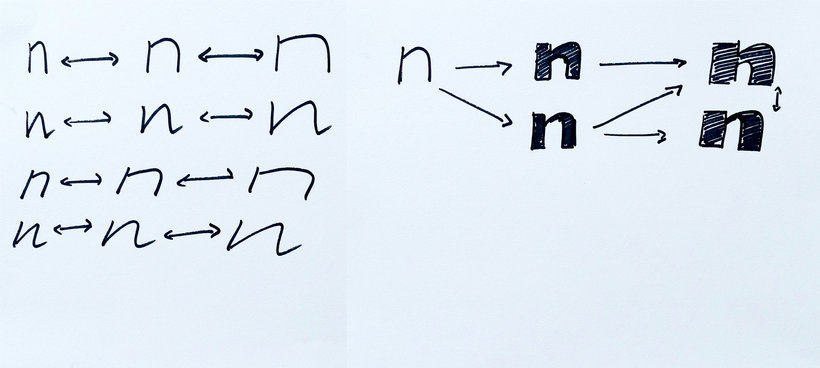 n ↔ n ↔ n
n ↔ n ↔ n
n ↔ n ↔ n
n ↔ n ↔ n
n → n → n
n → n